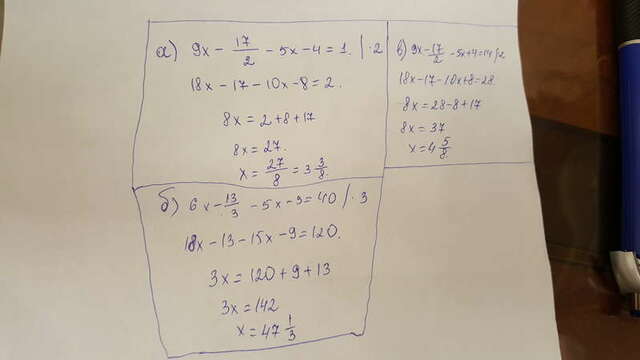 а) 9x - 17/2 - 5x - 4 = 1. | ·2
18x - 17 - 10x - 8 = 2.
8x = 2 + 8 + 17
8x = 27
x = 27/8 = 3 3/8
б) 6x - 13/3 - 5x - 3 = 40 | ·3
18x - 13 - 15x - 9 = 120.
3x = 120 + 9 + 13
3x = 142
x = 47 1/3
в) 9x - 17/2 - 5x + 4 = 14 | ·2
18x - 17 - 10x + 8 = 28
8x = 28 - 8 + 17
8x = 37
x = 4 5/8